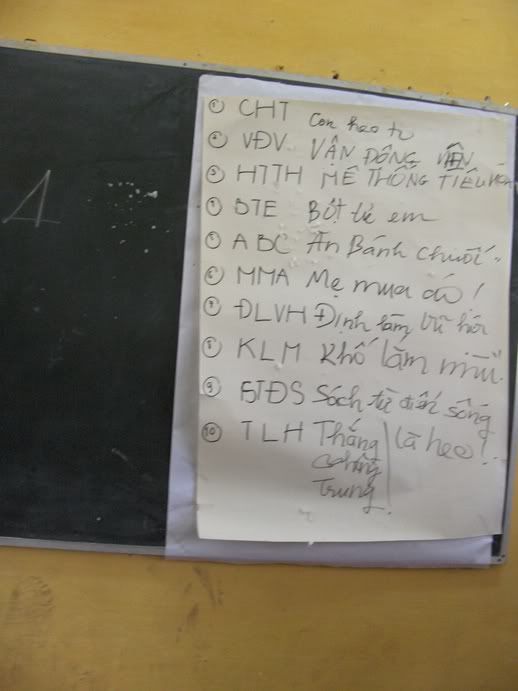 1
① CHT Con heo tu
② VĐV VẬN ĐỘNG VIÊN
③ HTTH HỆ THỐNG TIÊU HÓA
④ BTE Bột trẻ em
⑤ ABC Ăn Bánh chuối
⑥ MMA Mẹ mua áo!
⑦ ĐLVH Định làm
⑧ KLM Khổ lắm
⑨ STĐS Sách từ điển sống
⑩ TLH Thắng là heo!
Trung